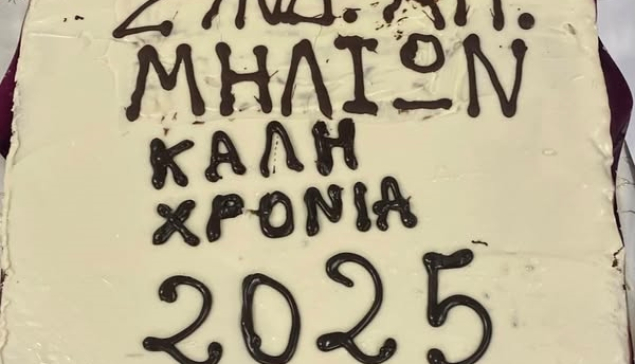 ΜΗΛΙΩΝ
ΚΑΛΗ
ΧΡΟΝΙΑ
2025